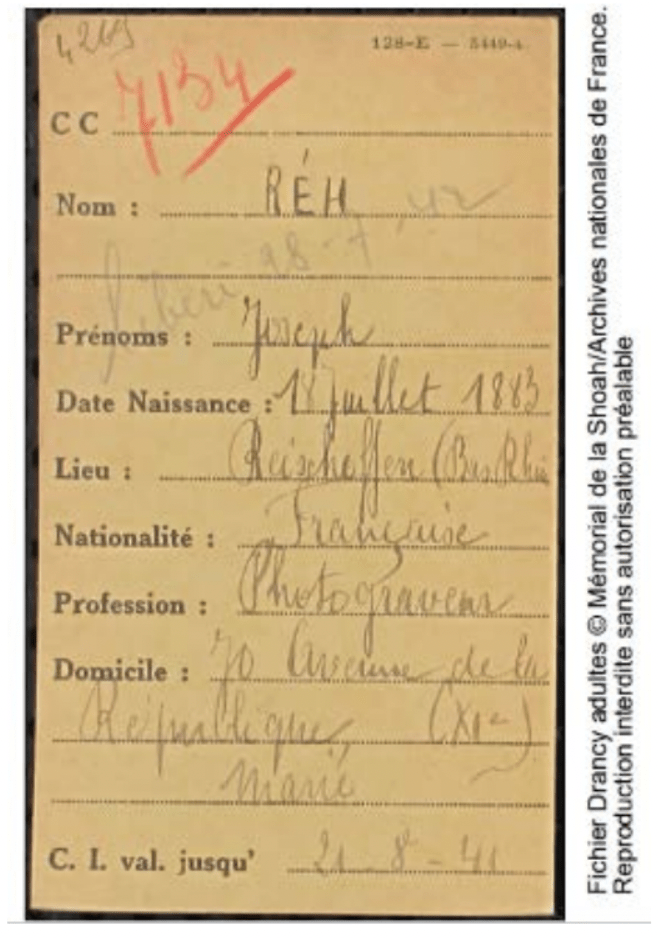 4269
128-E — 5449-4
CC 7134
Nom : RÉH
Libéré 28-7-42
Prénoms : Joseph
Date Naissance : 18 Juillet 1883
Lieu : Reischoffen (Bas Rhin
Nationalité : Française
Profession : Photograveur
Domicile : 70 Avenue de la
République, (XIe)
Marié
C. I. val. jusqu' 21-8-41
Fichier Drancy adultes © Mémorial de la Shoah/Archives nationales de France.
Reproduction interdite sans autorisation préalable